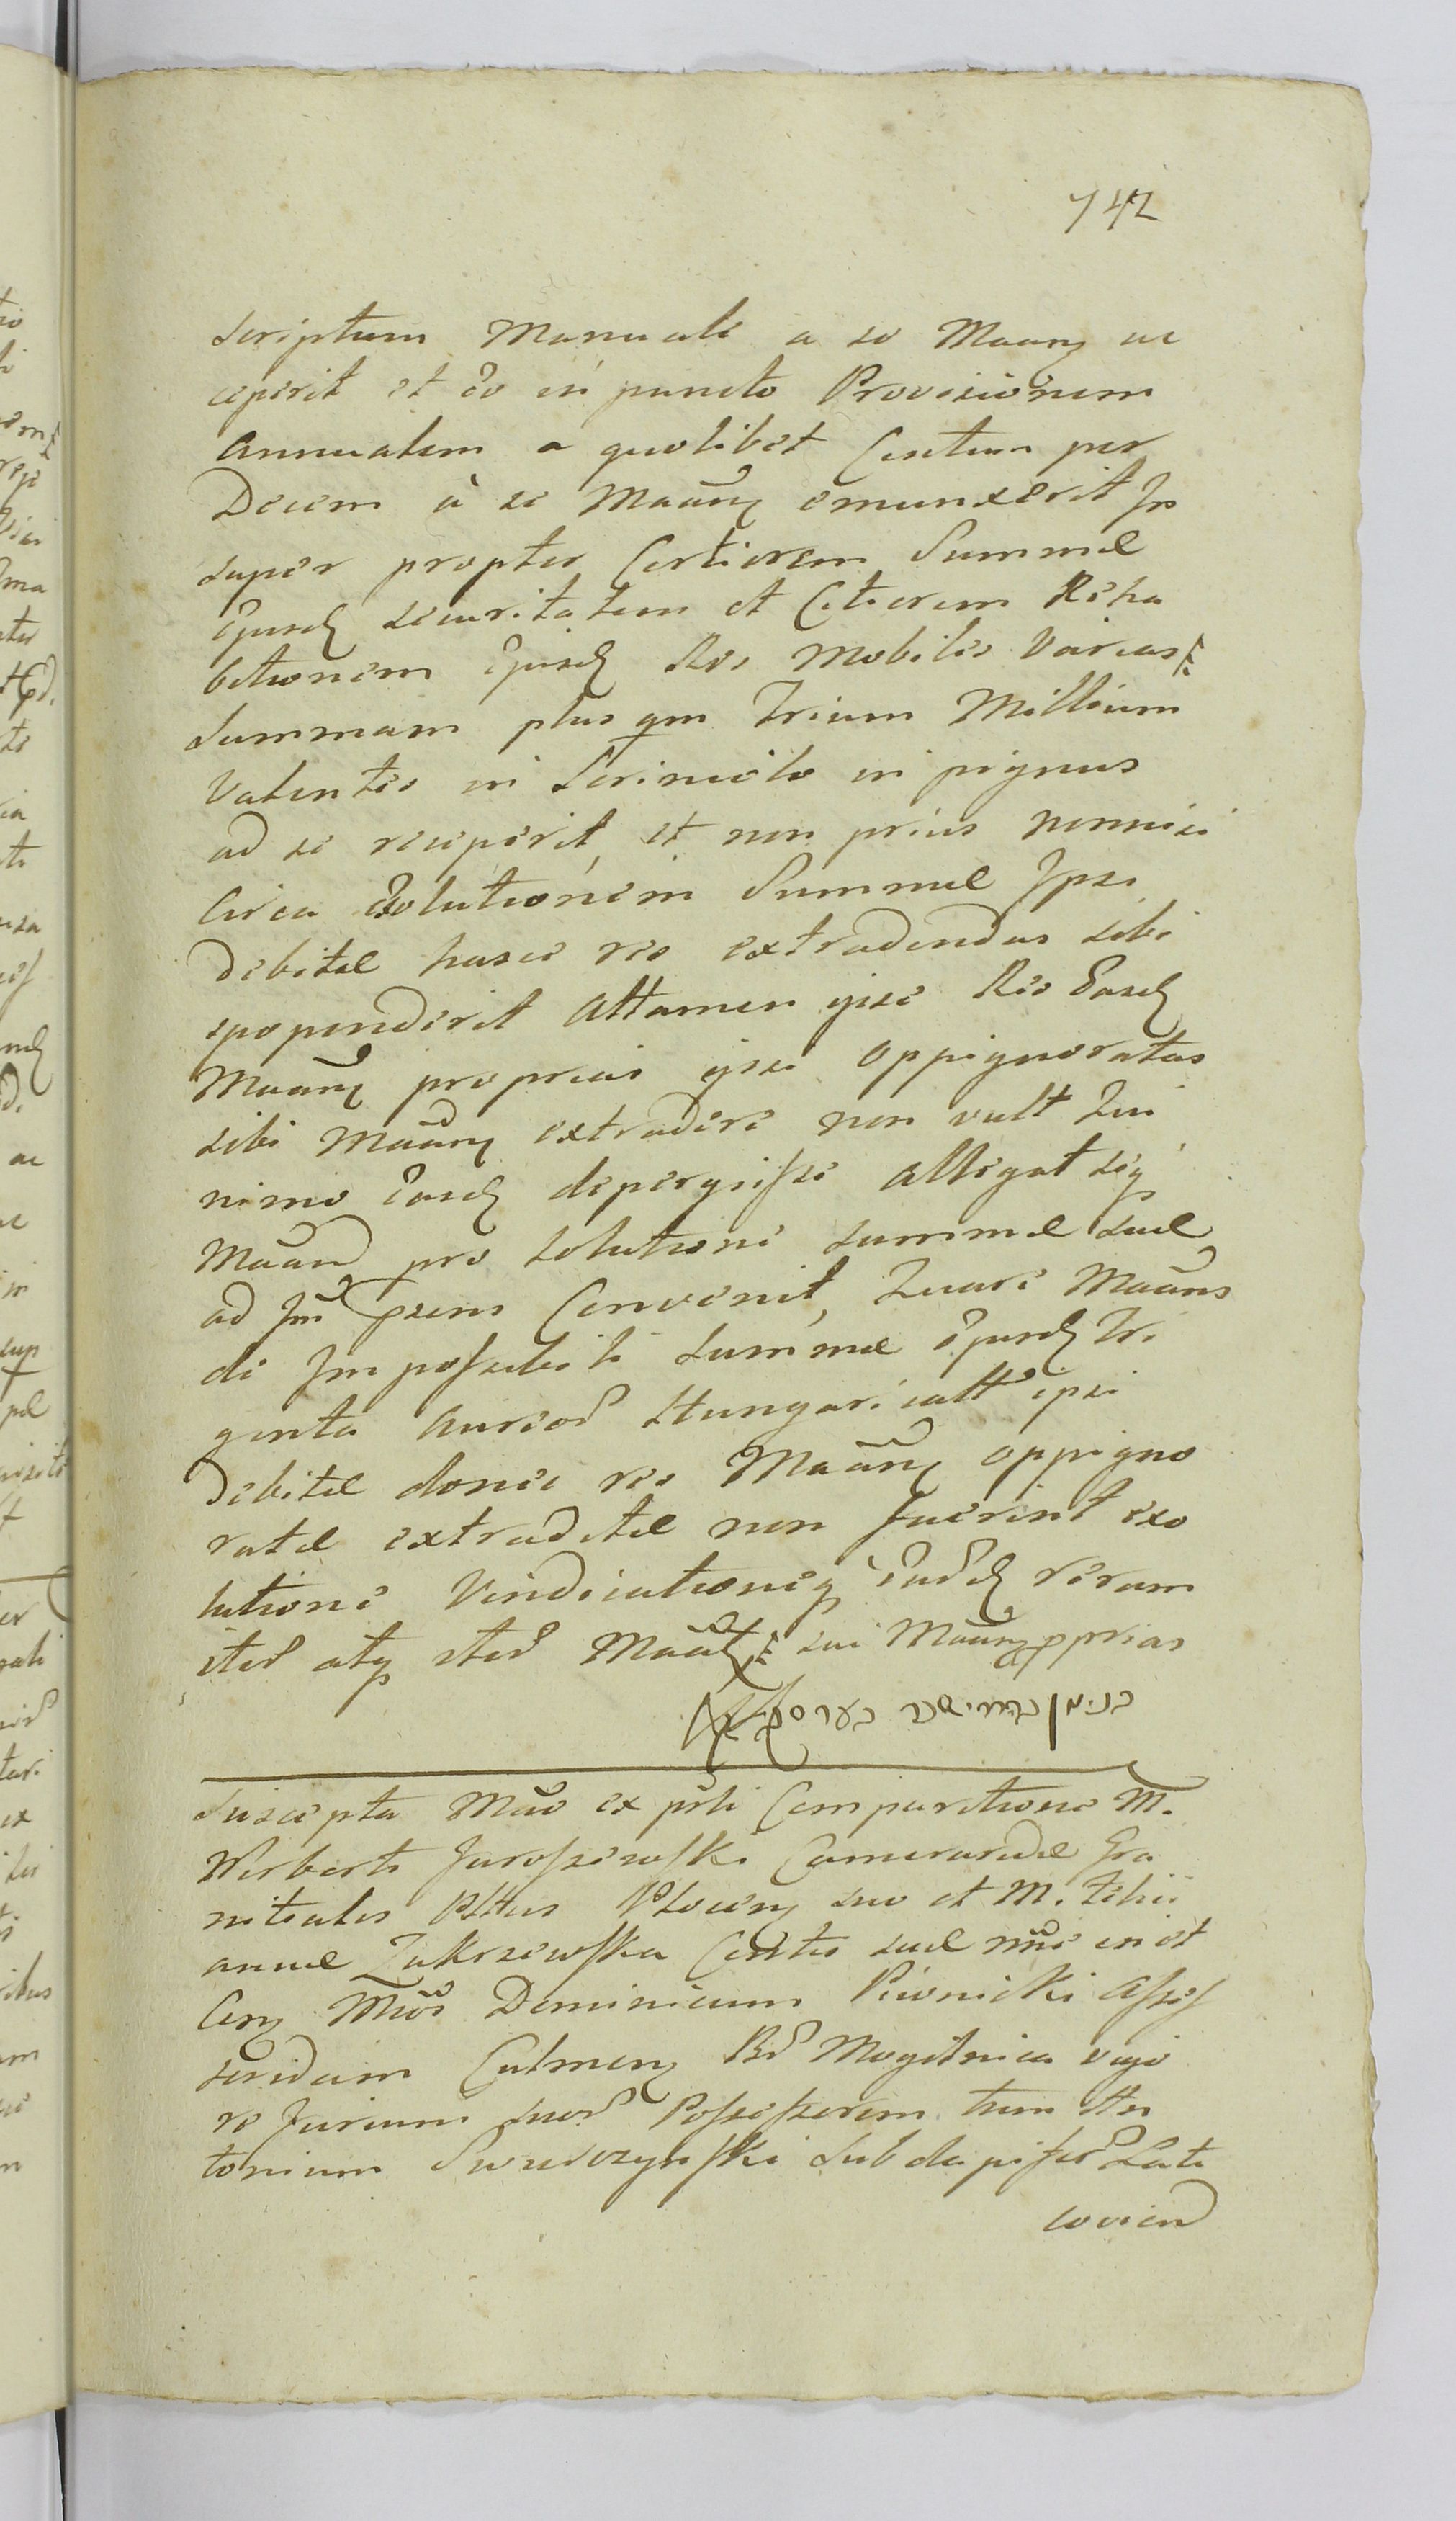 742
scriptum Manuale a se Maan̄ ac
ceperit et eo in puncto Provisionem
Annualem a quolibet Centum per
Decem à se Maan̄ emunxerit In
super propter Certiorem Summæ
ejusd securitatem et Citiorem Reha
bitionem ejusd Res Mobiles Varias
Summam plus qm Trium Millium
Valentes in Scriniolo in pignus
ad se receperit, et non prius nonnisi
Circa Exolutionem Summæ Ipsi
debitæ hasce res extradendas sibi
spoponderit Attamen ipse Res Easd
Maan̄ proprias ipsi oppignoratas
sibi Maan̄ extradere non vult Qui
nimo easd deperyisse allegat seq
Maan̄ pro solutione summæ suæ
ad Jm̄ Praens Convenit, Quare Maans
de Impossibili summæ ejusd Tri
ginta Aureor Hungaricall ipsi
debitæ donec res Maan̄ oppigno
ratæ extraditæ non fuerint exo
lutione Vindicationeq Eard rerum
iter atq iter sui Maan̄ pprias
Suscepta Mao ex pnti Comparitione M.
Norberti Jaroszewski Cameraridæ Gra
nitialis Pltus Plocen̄ suo et M. Felici
annæ Zakrzewska Contis suæ nme in et
Con̄ Mos Dominicum Piwnicki Asses
soridam Culmen̄ Br Mogilnica vigo
re Jurium suor Possessorem tum An
tonium subdapifer Lati
covien